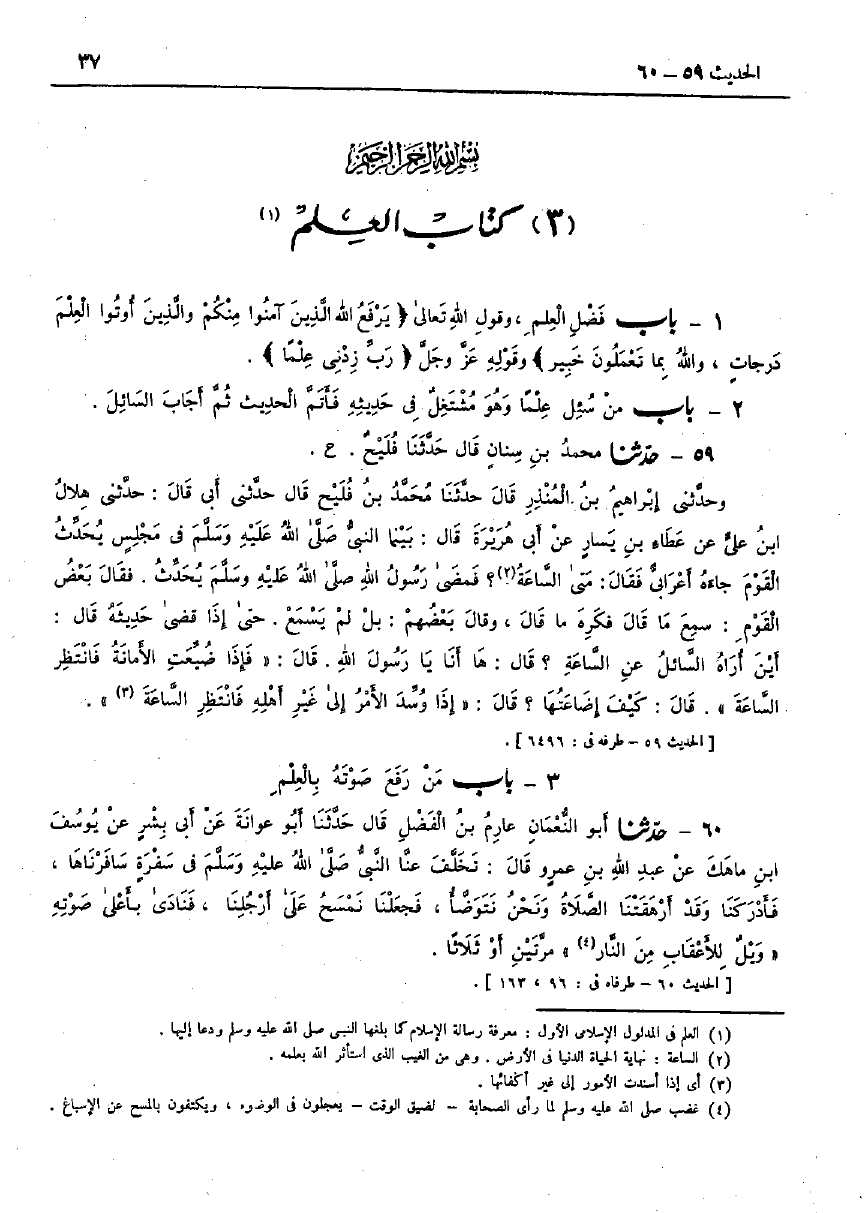 الحديث ٥٩ – ٦٠
٣٧
بِسْمِ اللهِ الرَّحْمٰنِ الرَّحِيمِ
(٣) كتابُ العِـلمْ (١)
١ – باب فَضْلِ الْعِلمِ ، وقولِ اللهِ تعالىٰ ﴿ يَرْفَعُ الله الَّذِينَ آمَنُوا مِنْكُمْ والَّذِينَ أُوتُوا الْعِلْمَ
دَرجاتٍ ، واللهُ بِما تَعْمَلُونَ خَبِير ﴾ وقَوْلِهِ عَزَّ وجَلَّ ﴿ رَبِّ زِدْنِى عِلْمًا ﴾ .
٢ – باب منْ سُئِل عِلْمًا وَهُوَ مُشْتَغِلٌ فِى حَدِيثِهِ فَأَتَمَّ الْحَدِيث ثُمَّ أَجَابَ السَّائِلَ .
٥٩ – حدّثنا محمدُ بنِ سِنانٍ قَال حَدَّثَنَا فُلَيْحٌ . ح .
وحدَّثنى إبْراهيمُ بنُ الْمُنْذِرِ قَالَ حدَّثَنَا مُحَمَّدُ بنُ فُلَيْح قَال حدَّثنى أَبى قَالَ : حدَّثنى هِلالُ
ابنُ علىٍّ عن عَطَاءِ بنِ يَسارٍ عنْ أَبى هُرَيْرَةَ قال : بَيْنما النبىُّ صَلَّىٰ اللهُ عَلَيْهِ وَسَلَّمَ فى مَجْلِسٍ يُحَدِّثُ
الْقَوْمَ جاءهُ أعْرَابىٌّ فَقَالَ : مَتىٰ السَّاعَةُ(٢)؟ فَمضىٰ رَسُولُ اللهِ صلَّىٰ اللهُ عَلَيْهِ وسَلَّمَ يُحَدِّثُ . فقَالَ بَعْضُ
الْقَوْمِ : سمِعَ مَا قَالَ فكَرِهَ ما قَالَ ، وقالَ بَعْضُهمْ : بلْ لمْ يَسْمَعْ . حتىٰ إذَا قضىٰ حَدِيثَهُ قَال :
أيْنَ أُرَاهُ السَّائلُ عنِ السَّاعَةِ ؟ قال : هَا أَنَا يَا رَسُولَ اللهِ . قَالَ : « فَإِذَا ضُيِّعَتِ الأَمانَةُ فَانْتَظِرِ
السَّاعَةَ » . قَالَ : كَيْفَ إضَاعَتُهَا ؟ قَالَ : « إذَا وُسِّدَ الأَمْرُ إلىٰ غَيْرِ أَهْلِهِ فَانْتَظِرِ السَّاعَةَ (٣) » .
[ الحديث ٥٩ – طرفه فى : ٦٤٩٦ ] .
٣ – باب مَنْ رَفَعَ صَوْتَهُ بِالْعِلْمِ
٦٠ – حدّثنا أبو النُّعْمَانِ عارِمُ بنُ الْفَضْلِ قَال حَدَّثَنَا أَبُو عوانَةَ عَنْ أبى بِشْرٍ عنْ يُوسُفَ
ابنِ ماهَكَ عنْ عبدِ اللهِ بنِ عمرٍو قَالَ : تَخَلَّفَ عنَّا النَّبىُّ صَلَّىٰ اللهُ عليْهِ وَسَلَّمَ فى سَفْرَةٍ سَافَرْنَاهَا ،
فَأَدْرَكَنَا وَقَدْ أَرْهَقَتْنَا الصَّلَاةُ وَنَحْنُ نَتَوَضَّأُ ، فَجعَلْنَا نَمْسَحُ عَلَىٰ أَرْجُلِنَا ، فَنَادَىٰ بأَعْلىٰ صَوْتِهِ
« وَيْلٌ لِلأَعْقَابِ مِنَ النَّارِ(٤) » مرَّتَيْنِ أَوْ ثَلَاثًا .
[ الحديث ٦٠ – طرفاه فى : ٩٦ ، ١٦٣ ] .
(١) العلم فى المدلول الإسلامى الأول : معرفة رسالة الإسلام كما بلغها النبى صلى الله عليه وسلم ودعا إليها .
(٢) الساعة : نهاية الحياة الدنيا فى الأرض . وهى من الغيب الذى استأثر الله بعلمه .
(٣) أى إذا أسندت الأمور إلى غير أكفائها .
(٤) غضب صلى الله عليه وسلم لما رأى الصحابة – لضيق الوقت – يعجلون فى الوضوء ، ويكتفون بالمسح عن الإسباغ .